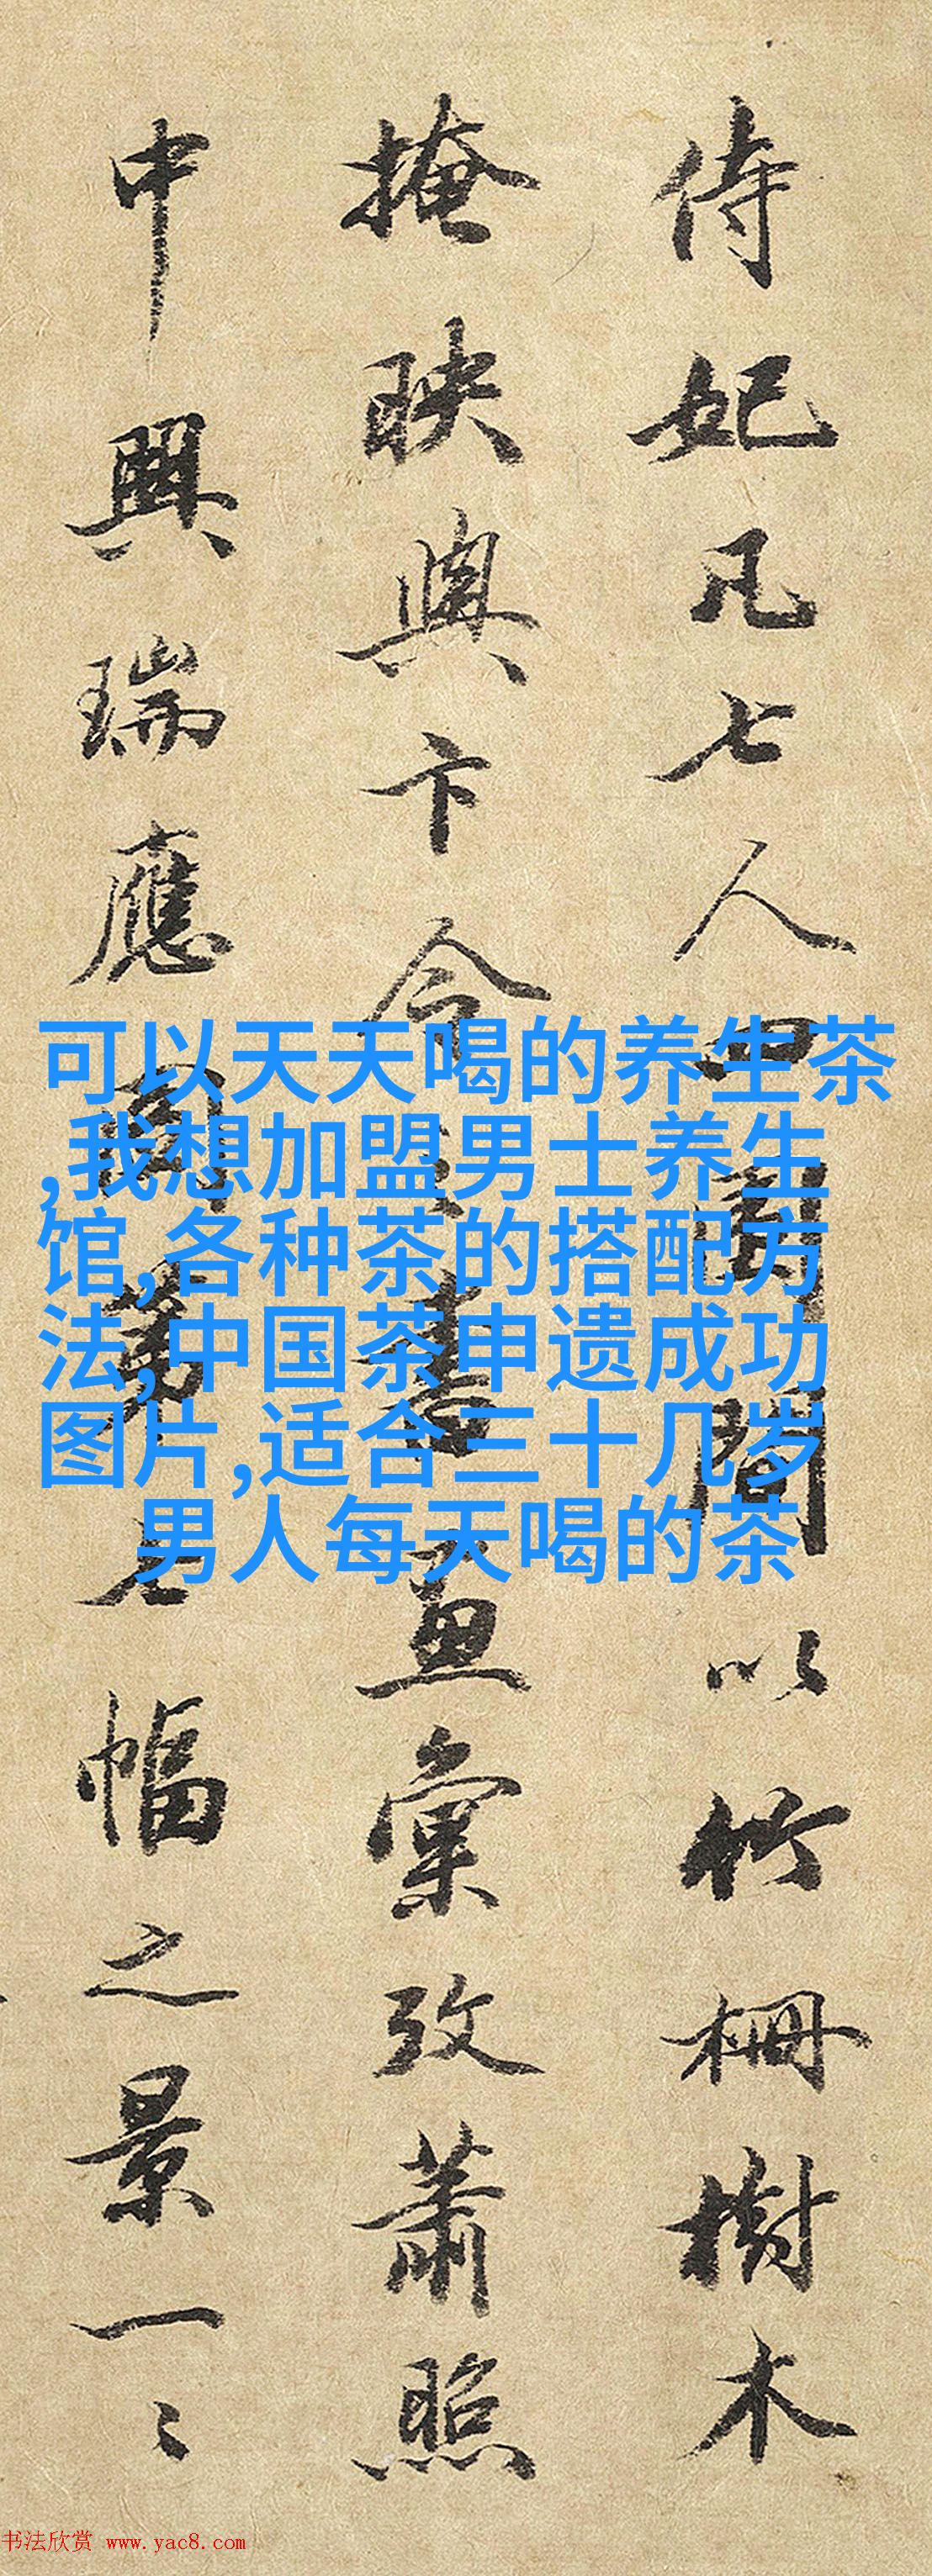 侍妃凡七人四圍間以竹柵樹木
掩映與卞令之書畫彙攷蕭照
中興瑞應圖第七幅之景一〻
可以天天喝的养生茶
,我想加盟男士养生
馆,各种茶的搭配方
法,中国茶申遗成功
图片,适合三十几岁
男人每天喝的茶
书法欣赏 www.yac8.com